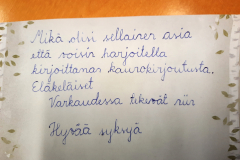 Mikä olisi sellainen asia
että voisin harjoitella
kirjoittamaan kaunokirjoitusta.
Eläkeläiset
Varkaudessa tekevät niin
Hyvää syksyä